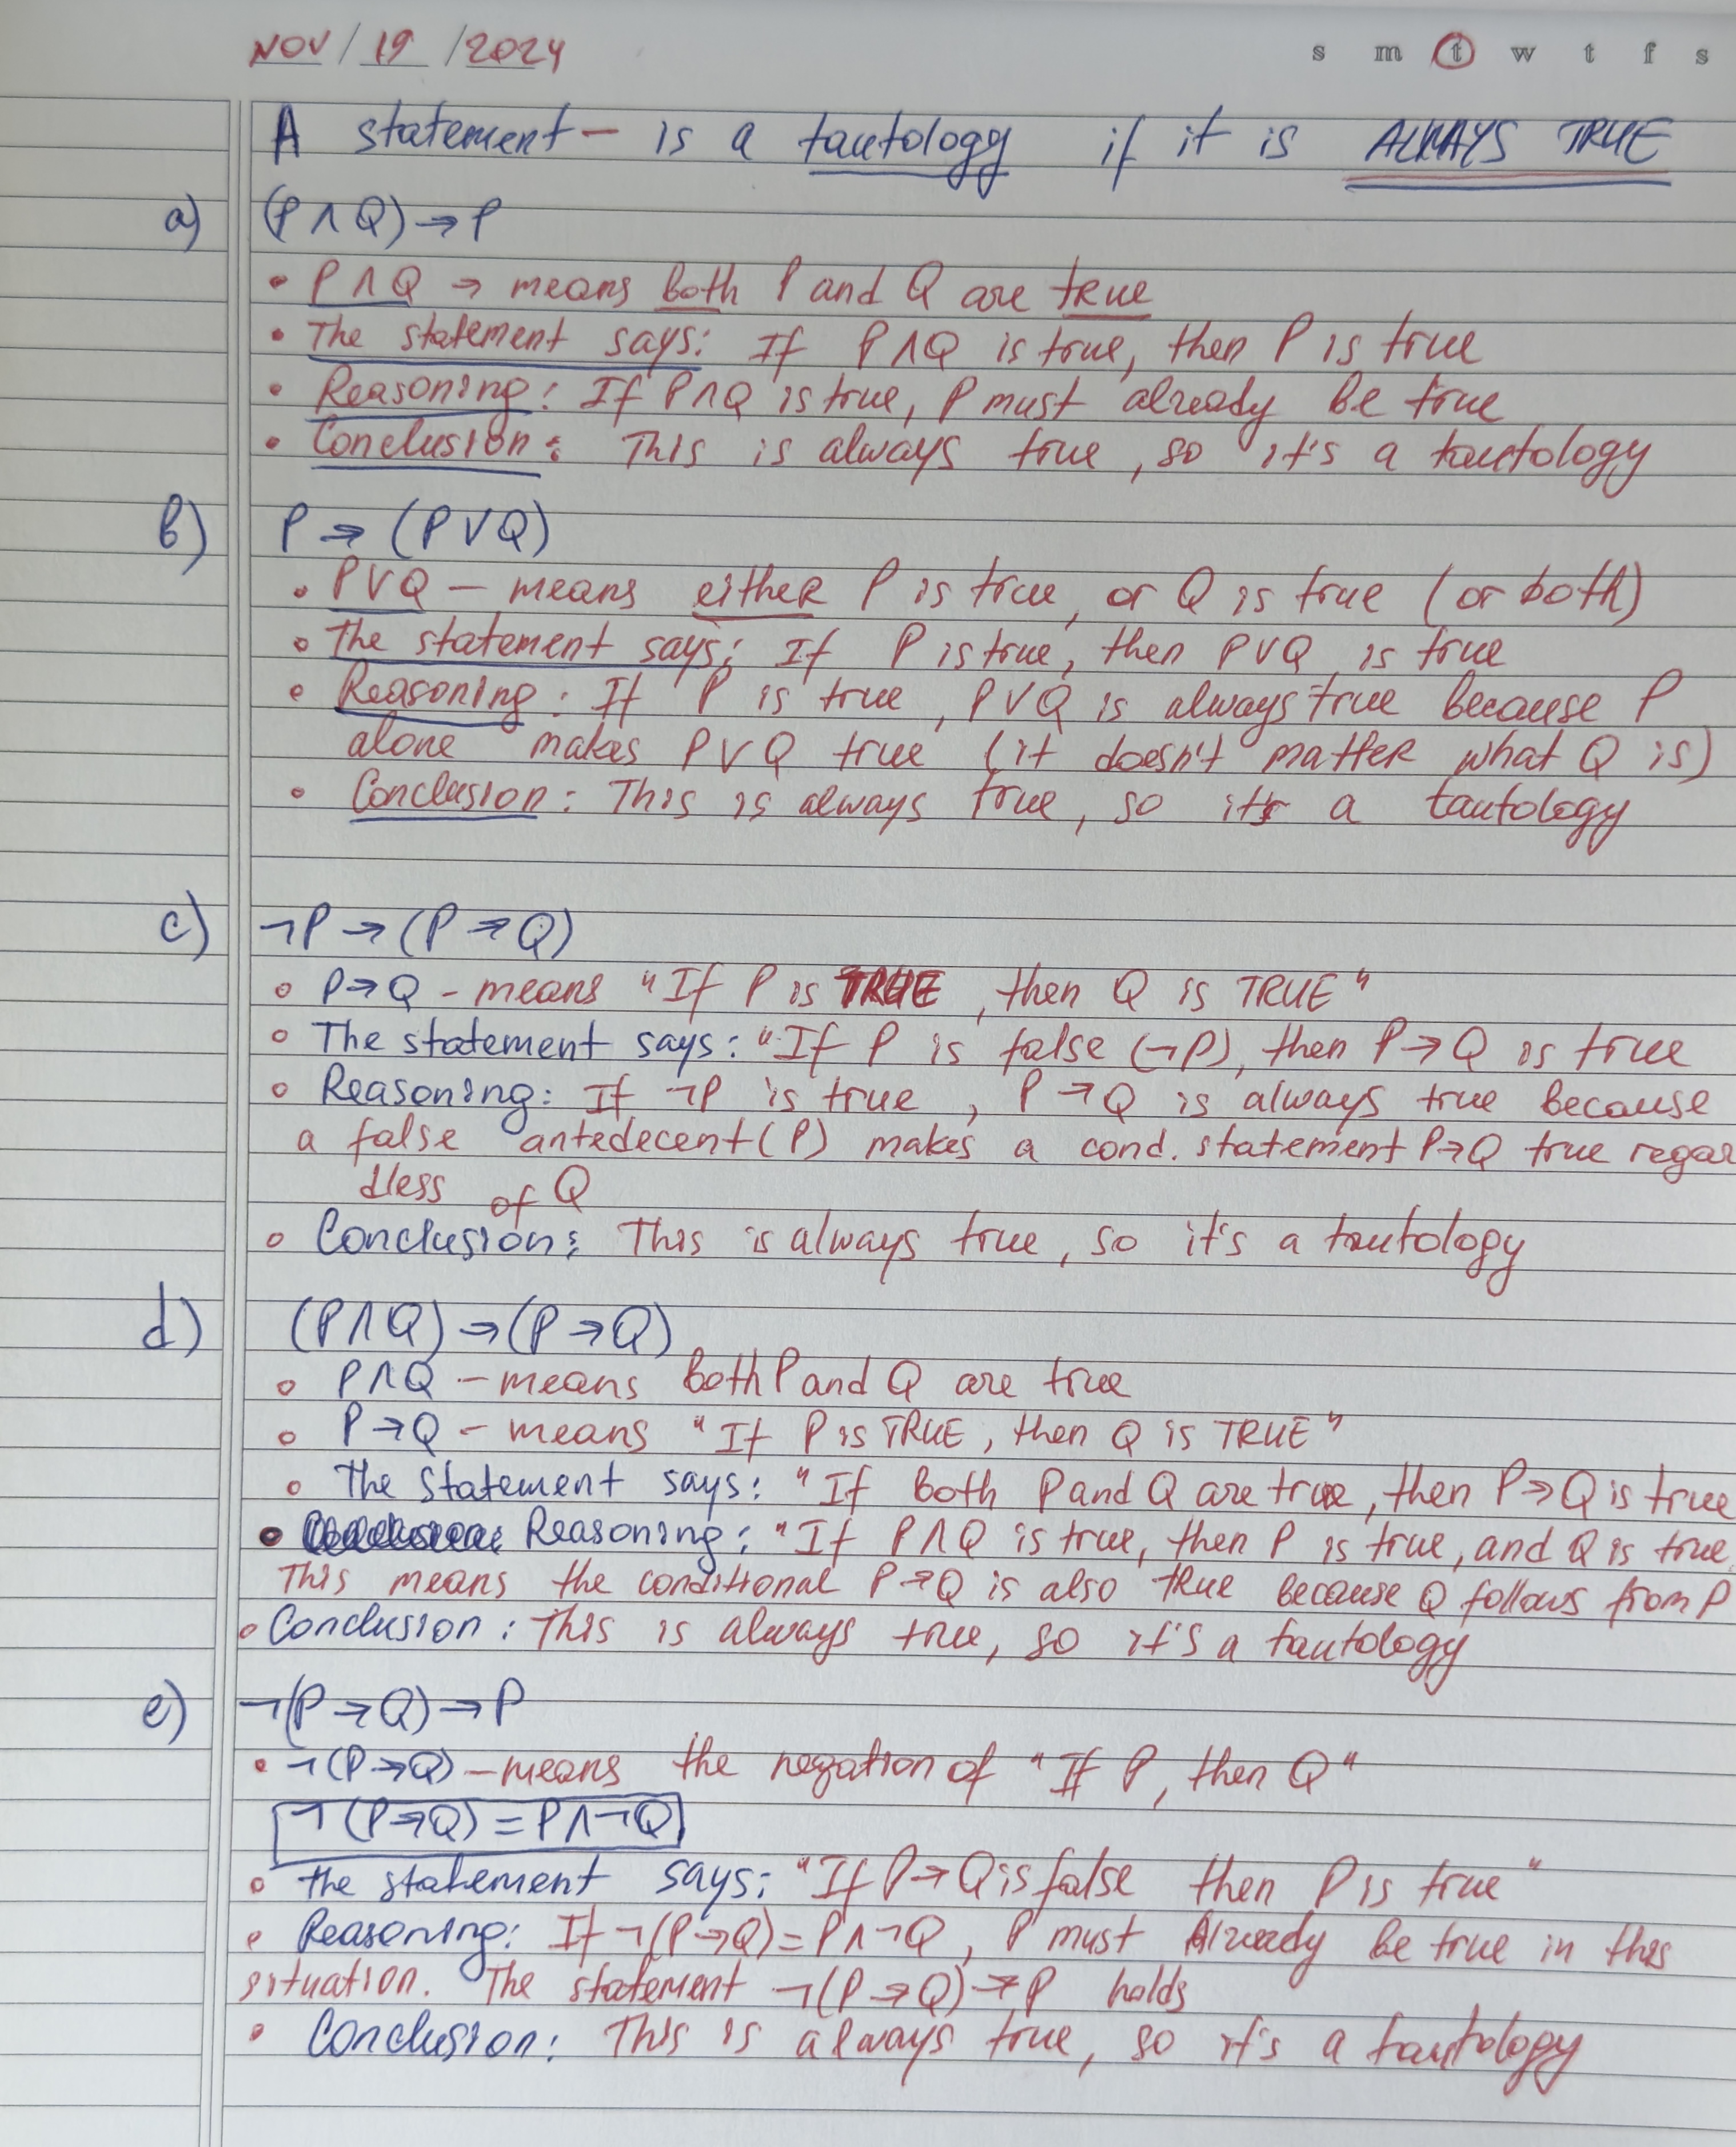 NOV / 19 / 2024 s m t w t f s
A statement – is a tautology if it is ALWAYS TRUE
a) (P ∧ Q) → P
• P ∧ Q → means both P and Q are true
• The statement says: If P ∧ Q is true, then P is true
• Reasoning: If P ∧ Q is true, P must already be true
• Conclusion: This is always true, so it's a tautology
b) P → (P ∨ Q)
• P ∨ Q – means either P is true, or Q is true (or both)
• The statement says: If P is true, then P ∨ Q is true
• Reasoning: If P is true, P ∨ Q is always true because P
alone makes P ∨ Q true (it doesn't matter what Q is)
• Conclusion: This is always true, so it's a tautology
c) ¬P → (P → Q)
• P → Q – means "If P is TRUE, then Q is TRUE"
• The statement says: "If P is false (¬P), then P → Q is true
• Reasoning: If ¬P is true, P → Q is always true because
a false antedecent (P) makes a cond. statement P → Q true regar
dless of Q
• Conclusion: This is always true, so it's a tautology
d) (P ∧ Q) → (P → Q)
• P ∧ Q – means both P and Q are true
• P → Q – means "If P is TRUE, then Q is TRUE"
• The statement says: "If both P and Q are true, then P → Q is true
• Reasoning: "If P ∧ Q is true, then P is true, and Q is true.
This means the conditional P → Q is also true because Q follows from P
• Conclusion: This is always true, so it's a tautology
e) ¬(P → Q) → P
• ¬(P → Q) – means the negation of "If P, then Q"
¬(P → Q) = P ∧ ¬Q
• the statement says: "If P → Q is false then P is true"
• Reasoning: If ¬(P → Q) = P ∧ ¬Q, P must Already be true in this
situation. The statement ¬(P → Q) → P holds
• Conclusion: This is always true, so it's a tautology